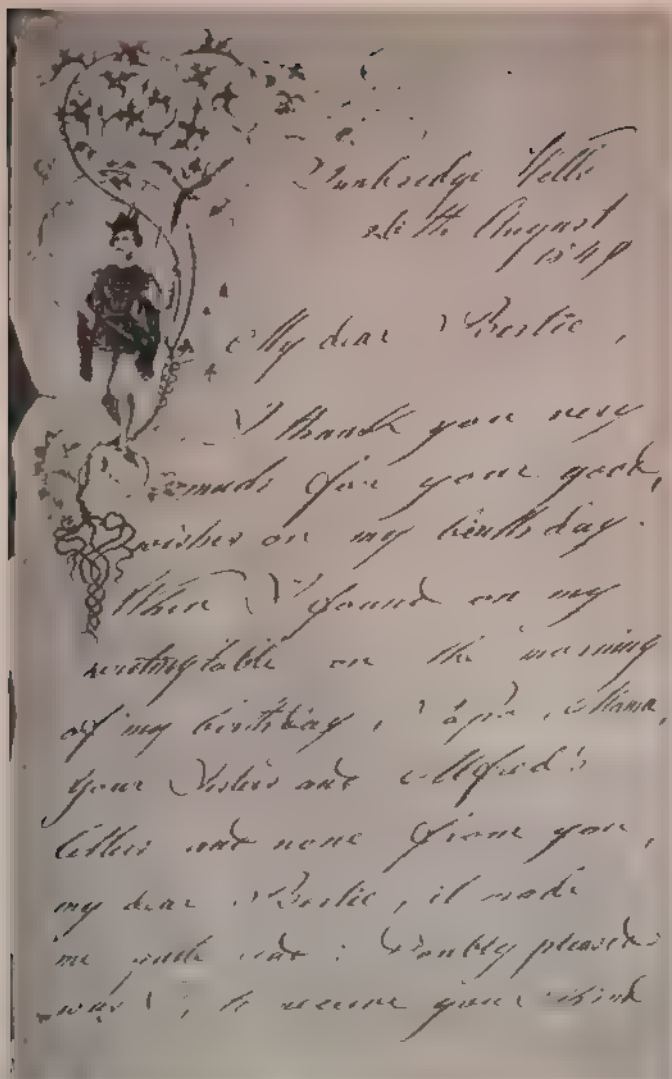 Tunbridge Wells
th August
1849
My dear Bertie,
I thank you very
much for your good,
wishes on my birthday.
When I found on my
writingtable on the morning
of my birthday, Papa, Mama,
your Sisters and Alfred's
letters and none from you,
my dear Bertie, it made
me quite sad: Doubly pleased
was I, to receive your kind